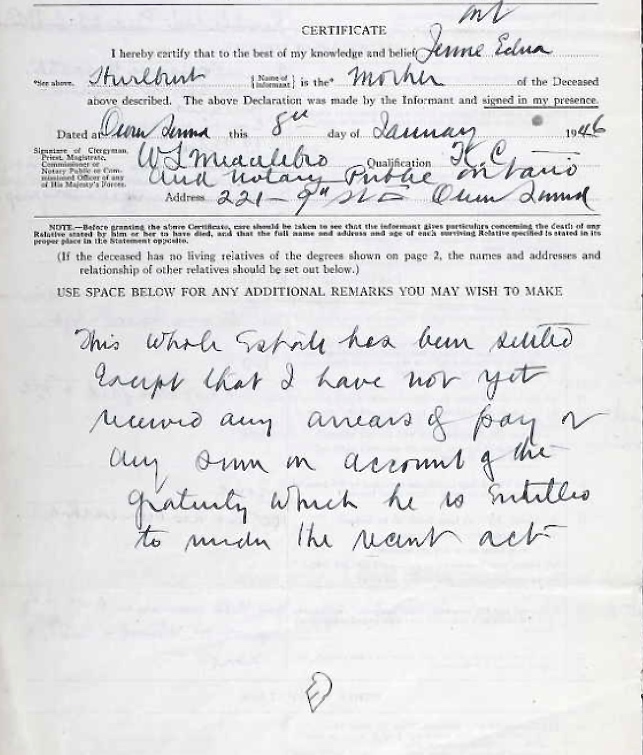 CERTIFICATE
I hereby certify that to the best of my knowledge and belief Jennie Edna
*See above. Hurlburt {Name of Informant} is the* Mother of the Deceased
above described. The above Declaration was made by the Informant and signed in my presence.
Dated at Owen Sound this 8th day of January 1946
Signature of Clergyman, Priest, Magistrate, Commissioner or Notary Public or Commissioned Officer of any of His Majesty's Forces. W S Middlebro Qualification K.C.
and Notary Public Ontario
Address 221-9th St E Owen Sound
NOTE.—Before granting the above Certificate, care should be taken to see that the informant gives particulars concerning the death of any
Relative stated by him or her to have died, and that the full name and address and age of each surviving Relative specified is stated in its
proper place in the Statement opposite.
(If the deceased has no living relatives of the degrees shown on page 2, the names and addresses and
relationship of other relatives should be set out below.)
USE SPACE BELOW FOR ANY ADDITIONAL REMARKS YOU MAY WISH TO MAKE
This whole Estate has been settled
Except that I have not yet
received any arrears of pay or
any sum on account of the
gratuity which he is entitled
to under the recent act